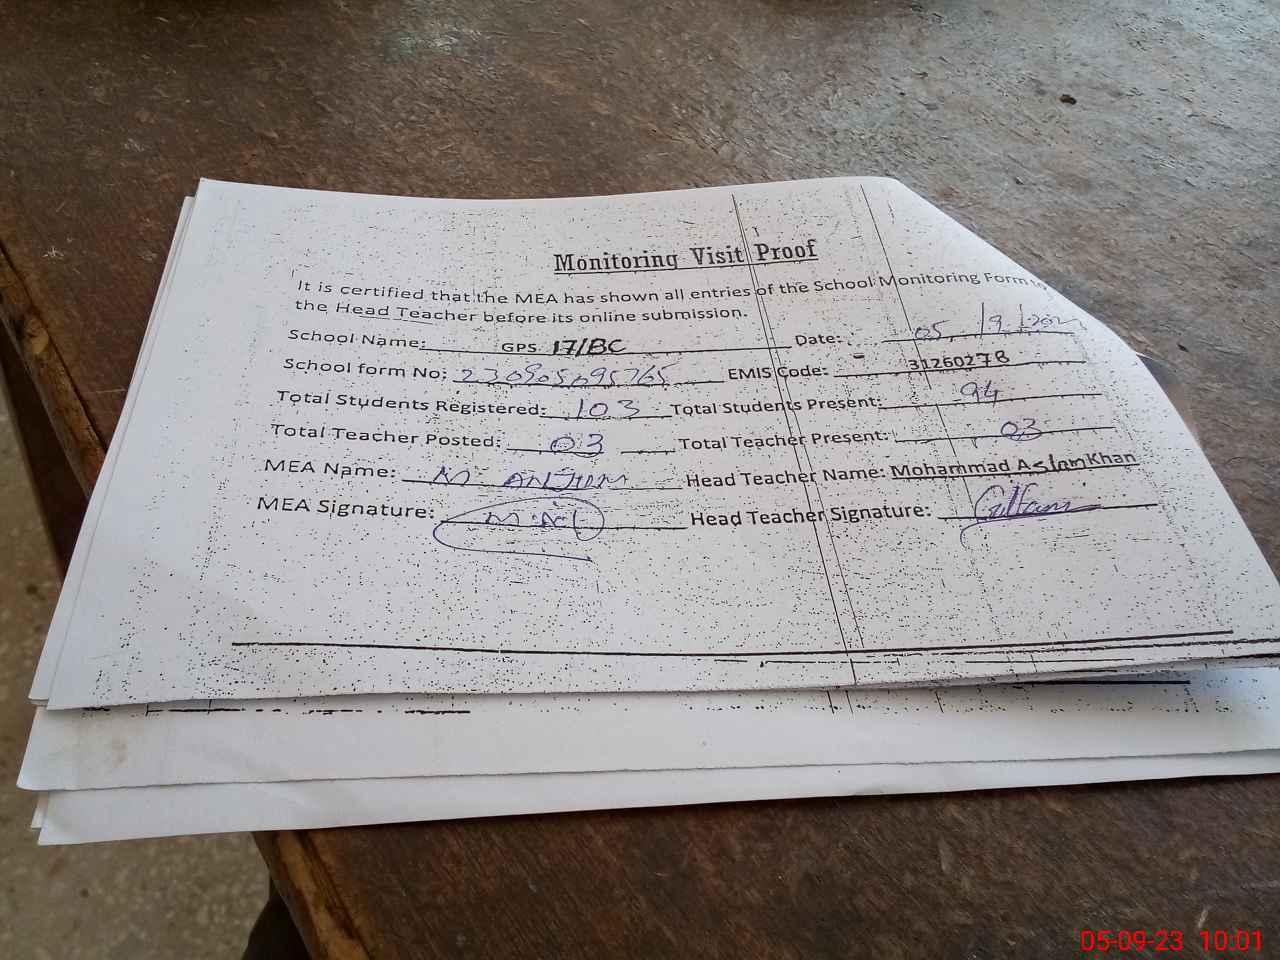 Monitoring Visit Proof
It is certified that the MEA has shown all entries of the School Monitoring Form to
the Head Teacher before its online submission.
School Name: GPS 17/BC Date: 05, /9/202
School form No: 230905095765 EMIS Code: 31260278
Total Students Registered: 103 Total Students Present: 94
Total Teacher Posted: 03 Total Teacher Present: 03
MEA Name: M ANJUM Head Teacher Name: Mohammad Aslam Khan
MEA Signature: Head Teacher Signature:
05-09-23 10:01